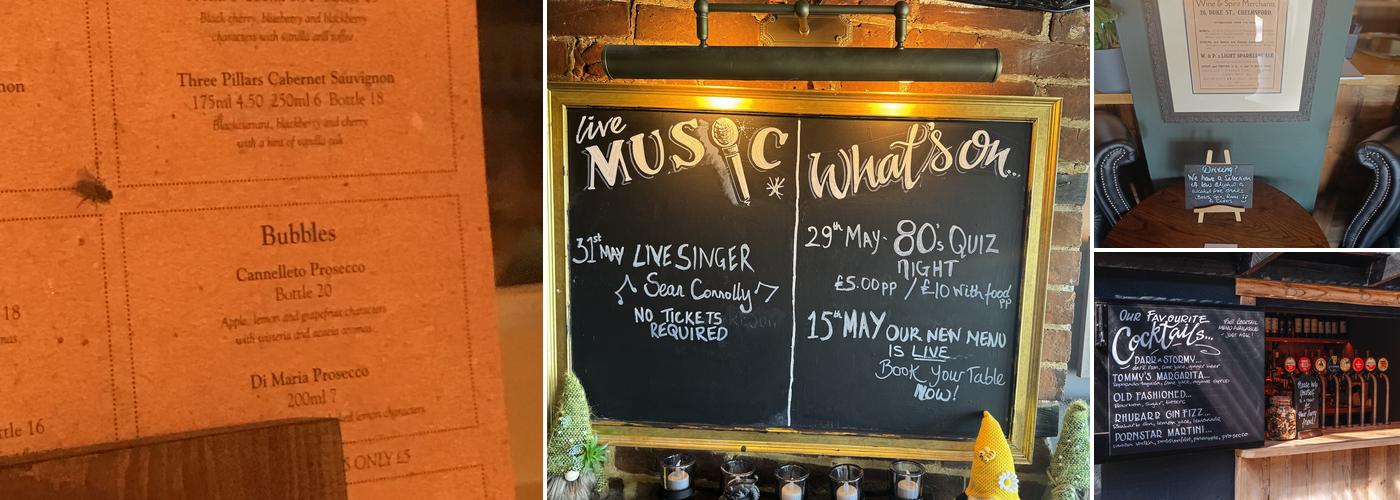 Black cherry, blueberry and blackberry
characters with vanilla and toffee
non
Three Pillars Cabernet Sauvignon
175ml 4.50 250ml 6 Bottle 18
Blackcurrant, blackberry and cherry
with a hint of vanilla oak
Bubbles
Cannelleto Prosecco
Bottle 20
18
Apple, lemon and grapefruit characters
with wisteria and acacia aromas
Di Maria Prosecco
200ml 7
lemon characters
ttle 16
S ONLY £5
live
MUSIC
31st MAY LIVE SINGER
Sean Connolly
NO TICKETS
REQUIRED
What's on...
29th May - 80's QUIZ
NIGHT
£5.00pp / £10 with food
pp
15th MAY OUR NEW MENU
IS LIVE
Book Your Table
NOW!
Wine & Spirit Merchants,
26, DUKE ST., CHELMSFORD.
W. & P.'s LIGHT SPARKLING ALE
Driving?
We have a selection
of low alcohol &
alcohol free drinks
OUR FAVOURITE
Cocktails...
FULL COCKTAIL
MENU AVAILABLE
- JUST ASK!
DARK & STORMY...
dark rum, lime juice, ginger beer
TOMMY'S MARGARITA...
lime juice, agave syrup
OLD FASHIONED...
Bourbon, sugar, bitters
RHUBARB GIN FIZZ...
Rhubarb Gin, lime juice, lemonade
PORNSTAR MARTINI...
vanilla vodka, passionfruit, pineapple, prosecco
Please help
yourself